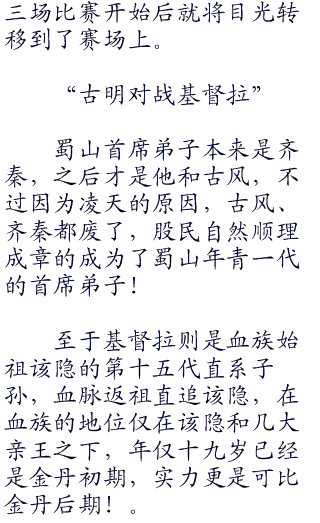 三场比赛开始后就将目光转
移到了赛场上。
“古明对战基督拉”
蜀山首席弟子本来是齐
秦，之后才是他和古风，不
过因为凌天的原因，古风、
齐秦都废了，股民自然顺理
成章的成为了蜀山年青一代
的首席弟子！
至于基督拉则是血族始
祖该隐的第十五代直系子
孙，血脉返祖直追该隐，在
血族的地位仅在该隐和几大
亲王之下，年仅十九岁已经
是金丹初期，实力更是可比
金丹后期！。